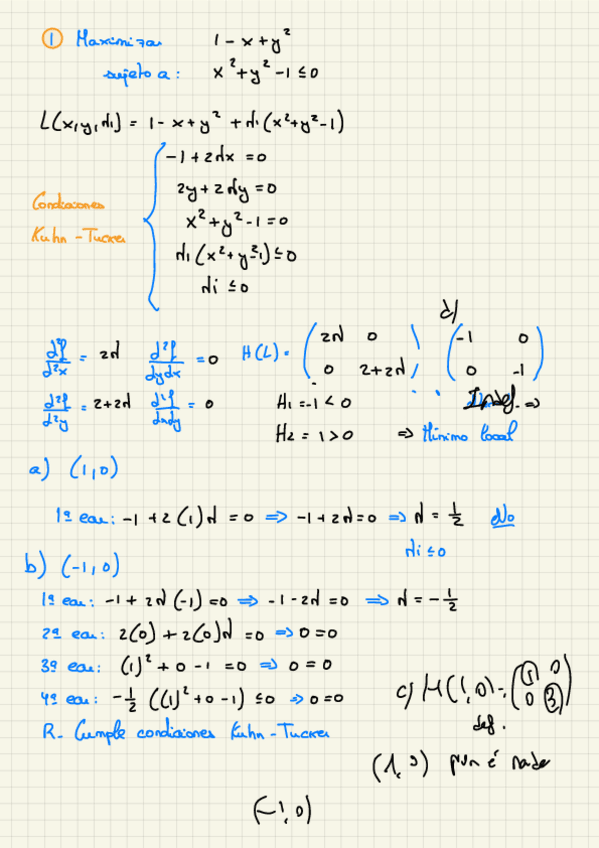 ① Maximizar 1 - x + y²
sujeto a: x² + y² - 1 ≤ 0
L(x,y,λ1) = 1 - x + y² + λ1(x² + y² - 1)
Condiciones Kuhn-Tucker
-1 + 2λx = 0
2y + 2λy = 0
x² + y² - 1 = 0
λ1(x² + y² - 1) ≤ 0
λi ≤ 0
d²f/d²x = 2λ d²f/dydx = 0 H(L) = (2λ 0
0 2+2λ)
d/ (-1 0
0 -1)
d²f/d²y = 2+2λ d²f/dxdy = 0 H1 = -1 < 0 Indef. ⇒
H2 = 1 > 0 ⇒ Mínimo local
a) (1,0)
1ª ecu: -1 + 2(1)λ = 0 ⇒ -1 + 2λ = 0 ⇒ λ = 1/2 No
λi ≤ 0
b) (-1,0)
1ª ecu: -1 + 2λ(-1) = 0 ⇒ -1 - 2λ = 0 ⇒ λ = -1/2
2ª ecu: 2(0) + 2(0)λ = 0 ⇒ 0 = 0
3ª ecu: (1)² + 0 - 1 = 0 ⇒ 0 = 0
4ª ecu: -1/2 ((1)² + 0 - 1) ≤ 0 ⇒ 0 = 0
R- Cumple condiciones Kuhn-Tucker
c) H(1,0) = (1 0
0 3)
def.
(1,0) é nade
(-1,0)